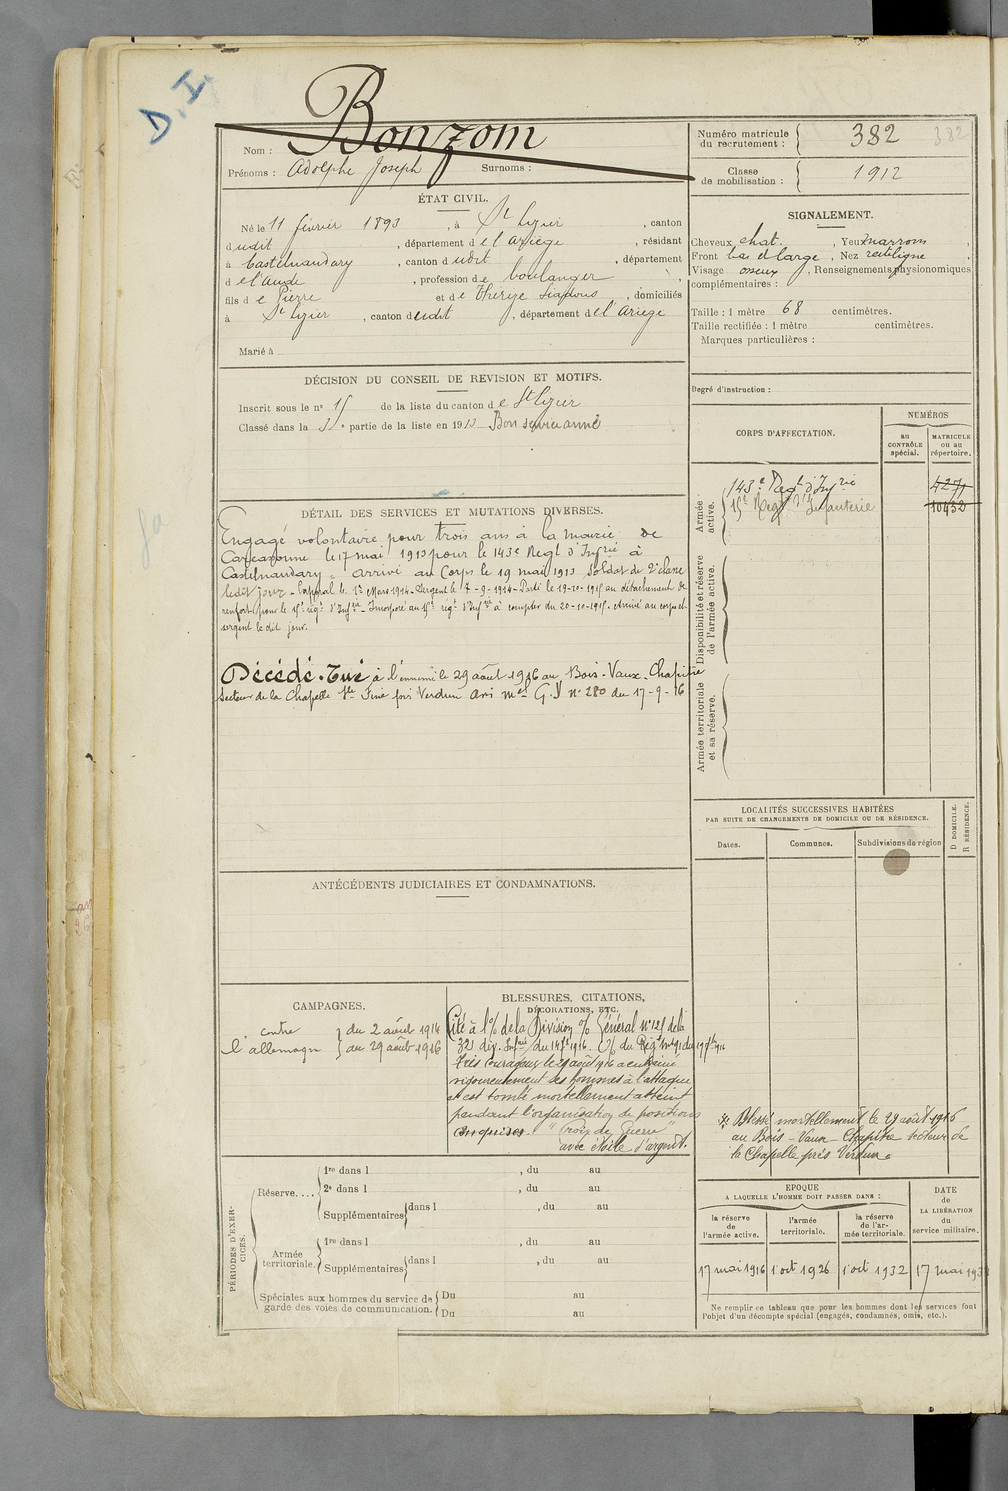 D.I.
Bonzom
Nom :
Prénoms : Adolphe Joseph Surnoms :
Numéro matricule du recrutement : 382 382
Classe de mobilisation : 1912
ÉTAT CIVIL.
Né le 11 février 1893, à St Lizier, canton
dudit, département de l'Ariège, résidant
à Castelnaudary, canton dudit, département
de l'Aude, profession de boulanger
fils de Pierre et de Thérèse, domiciliés
à St Lizier, canton dudit, département de l'Ariège
Marié à
SIGNALEMENT.
Cheveux chat., Yeux marrons,
Front bas et large, Nez rectiligne,
Visage osseux, Renseignements physionomiques
complémentaires :
Taille : 1 mètre 68 centimètres.
Taille rectifiée : 1 mètre centimètres.
Marques particulières :
Degré d'instruction :
DÉCISION DU CONSEIL DE REVISION ET MOTIFS.
Inscrit sous le n° 15 de la liste du canton de St Lizier
Classé dans la 3e partie de la liste en 1913 Bon service armé
DÉTAIL DES SERVICES ET MUTATIONS DIVERSES.
Engagé volontaire pour trois ans à la mairie de
Carcassonne le 17 mai 1913 pour le 143e Regt d'Infrie à
Castelnaudary. arrivé au Corps le 19 mai 1913 Soldat de 2e classe
ledit jour. Caporal le 1er Mars 1914. Sergent le 7-9-1914. Parti le 19-10-1915 au détachement de
renfort pour le 15e régt d'Infrie. Incorporé au 15e régt d'Infrie à compter du 20-10-1915. Arrivé au corps et
sergent le dit jour.
Décédé. Tué à l'ennemi le 29 août 1916 au Bois-Vaux-Chapitre
Secteur de la Chapelle Ste Fine près Verdun avis mel G.J n° 280 du 17-9-16
CORPS D'AFFECTATION.
NUMÉROS
au CONTRÔLE spécial.
MATRICULE ou au répertoire.
Armée active.
143e Regt d'Infrie 4271
15e Regt d'Infanterie 10432
Disponibilité et réserve de l'armée active.
Armée territoriale et sa réserve.
LOCALITÉS SUCCESSIVES HABITÉES
PAR SUITE DE CHANGEMENTS DE DOMICILE OU DE RÉSIDENCE.
Dates. Communes. Subdivisions de région
D DOMICILE.
R RÉSIDENCE.
ANTÉCÉDENTS JUDICIAIRES ET CONDAMNATIONS.
CAMPAGNES.
contre } du 2 août 1914
l'allemagne } au 29 août 1916
BLESSURES, CITATIONS,
DÉCORATIONS, ETC.
Cité à l'% de la Division % Général N° 125 de la
32e div. Infrie du 14 1916. % du Regt
Très courageux le 29 août 1916 a entrainé
vigoureusement ses hommes à l'attaque
et est tombé mortellement atteint
pendant l'organisation de positions
conquises. "Croix de Guerre"
avec étoile d'argent.
Blessé mortellement le 29 août 1916
au Bois-Vaux-Chapitre secteur de
la Chapelle près Verdun.
PÉRIODES D'EXERCICES.
Réserve....
1re dans l , du au
2e dans l , du au
Supplémentaires dans l , du au
Armée territoriale.
1re dans l , du au
Supplémentaires dans l , du au
Spéciales aux hommes du service de garde des voies de communication.
Du au
Du au
EPOQUE
A LAQUELLE L'HOMME DOIT PASSER DANS :
la réserve de l'armée active.
l'armée territoriale.
la réserve de l'armée territoriale.
DATE de LA LIBÉRATION du service militaire.
17 mai 1916 1 oct 1926 1 oct 1932 17 mai
Ne remplir ce tableau que pour les hommes dont les services font
l'objet d'un décompte spécial (engagés, condamnés, omis, etc.).